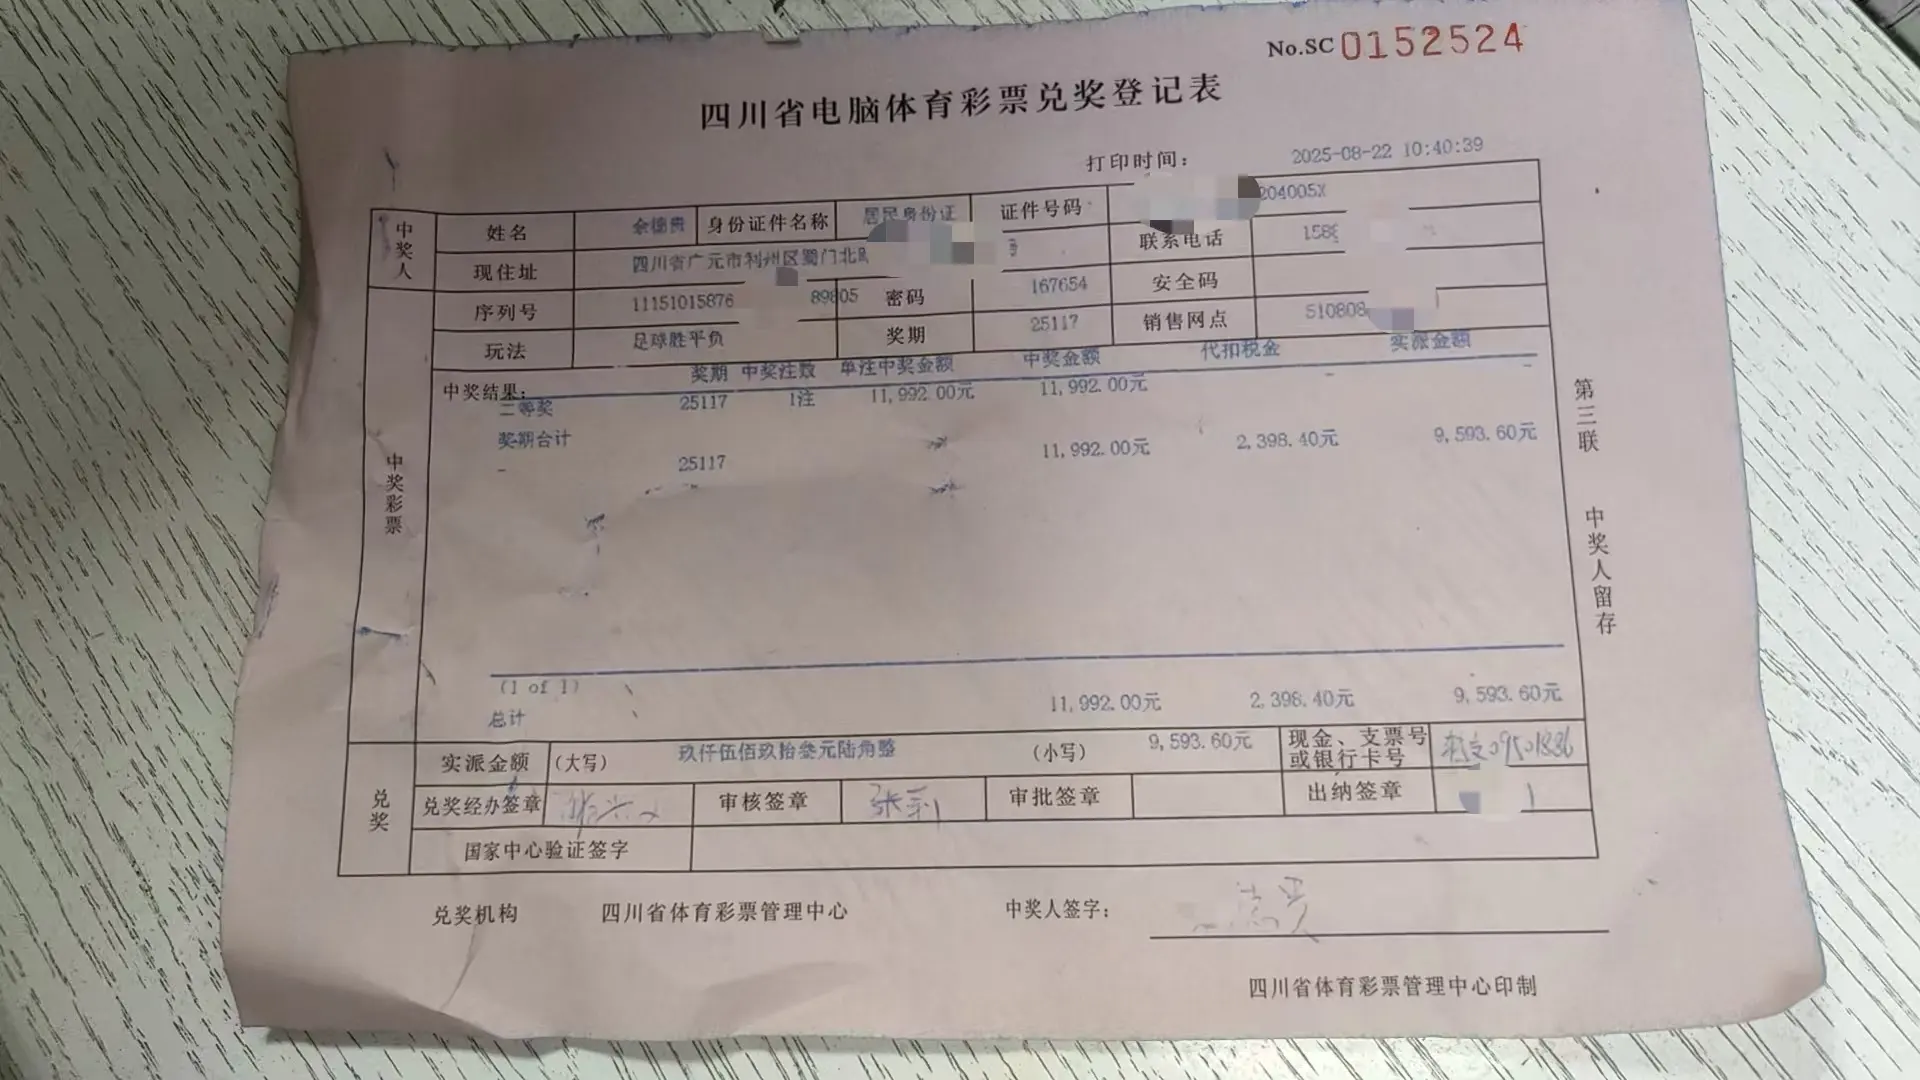 No.SC 0152524
四川省电脑体育彩票兑奖登记表
打印时间: 2025-08-22 10:40:39
中奖人
姓名 余德贵 身份证件名称 居民身份证 证件号码 204005X
现住址 四川省广元市利州区蜀门北 联系电话 158
序列号 11151015876 89805 密码 167654 安全码
玩法 足球胜平负 奖期 25117 销售网点 510808
中奖彩票
中奖结果: 奖期 中奖注数 单注中奖金额 中奖金额 代扣税金 实派金额
二等奖 25117 1注 11,992.00元 11,992.00元 - -
奖期合计 11,992.00元 2,398.40元 9,593.60元
- 25117
(1 of 1)
总计 11,992.00元 2,398.40元 9,593.60元
兑奖
实派金额 (大写) 玖仟伍佰玖拾叁元陆角整 (小写) 9,593.60元 现金、支票号或银行卡号 09501886
兑奖经办签章 审核签章 张莉 审批签章 出纳签章
国家中心验证签字
兑奖机构 四川省体育彩票管理中心 中奖人签字:
四川省体育彩票管理中心印制
第三联 中奖人留存